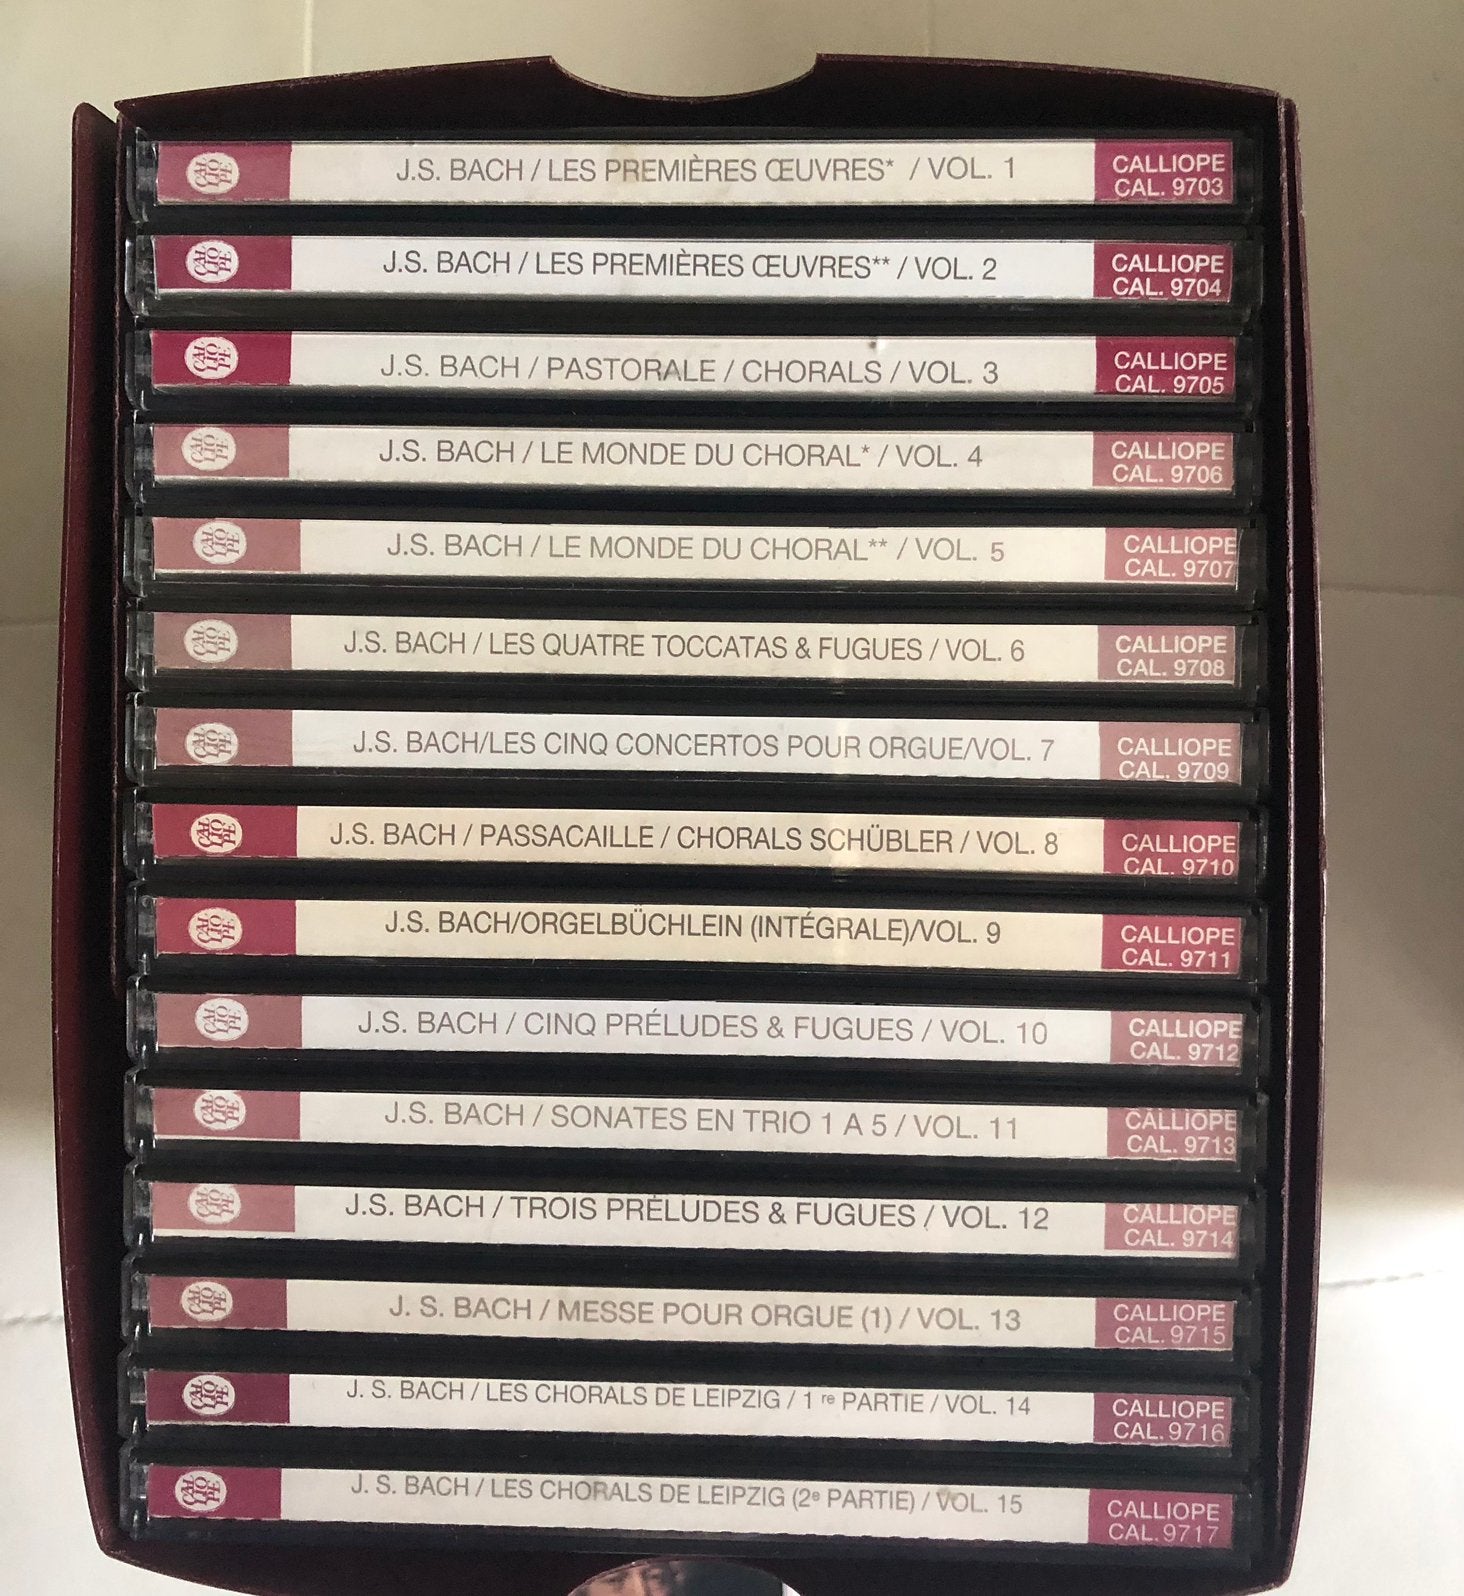 CALLIOPE
J.S. BACH / LES PREMIÈRES ŒUVRES* / VOL. 1
CALLIOPE
CAL. 9703
CALLIOPE
J.S. BACH / LES PREMIÈRES ŒUVRES** / VOL. 2
CALLIOPE
CAL. 9704
CALLIOPE
J.S. BACH / PASTORALE / CHORALS / VOL. 3
CALLIOPE
CAL. 9705
CALLIOPE
J.S. BACH / LE MONDE DU CHORAL* / VOL. 4
CALLIOPE
CAL. 9706
CALLIOPE
J.S. BACH / LE MONDE DU CHORAL** / VOL. 5
CALLIOPE
CAL. 9707
CALLIOPE
J.S. BACH / LES QUATRE TOCCATAS & FUGUES / VOL. 6
CALLIOPE
CAL. 9708
CALLIOPE
J.S. BACH/LES CINQ CONCERTOS POUR ORGUE/VOL. 7
CALLIOPE
CAL. 9709
CALLIOPE
J.S. BACH / PASSACAILLE / CHORALS SCHÜBLER / VOL. 8
CALLIOPE
CAL. 9710
CALLIOPE
J.S. BACH/ORGELBÜCHLEIN (INTÉGRALE)/VOL. 9
CALLIOPE
CAL. 9711
CALLIOPE
J.S. BACH / CINQ PRÉLUDES & FUGUES / VOL. 10
CALLIOPE
CAL. 9712
CALLIOPE
J.S. BACH / SONATES EN TRIO 1 A 5 / VOL. 11
CALLIOPE
CAL. 9713
CALLIOPE
J.S. BACH / TROIS PRÉLUDES & FUGUES / VOL. 12
CALLIOPE
CAL. 9714
CALLIOPE
J. S. BACH / MESSE POUR ORGUE (1) / VOL. 13
CALLIOPE
CAL. 9715
CALLIOPE
J. S. BACH / LES CHORALS DE LEIPZIG / 1 re PARTIE / VOL. 14
CALLIOPE
CAL. 9716
CALLIOPE
J. S. BACH / LES CHORALS DE LEIPZIG (2e PARTIE) / VOL. 15
CALLIOPE
CAL. 9717